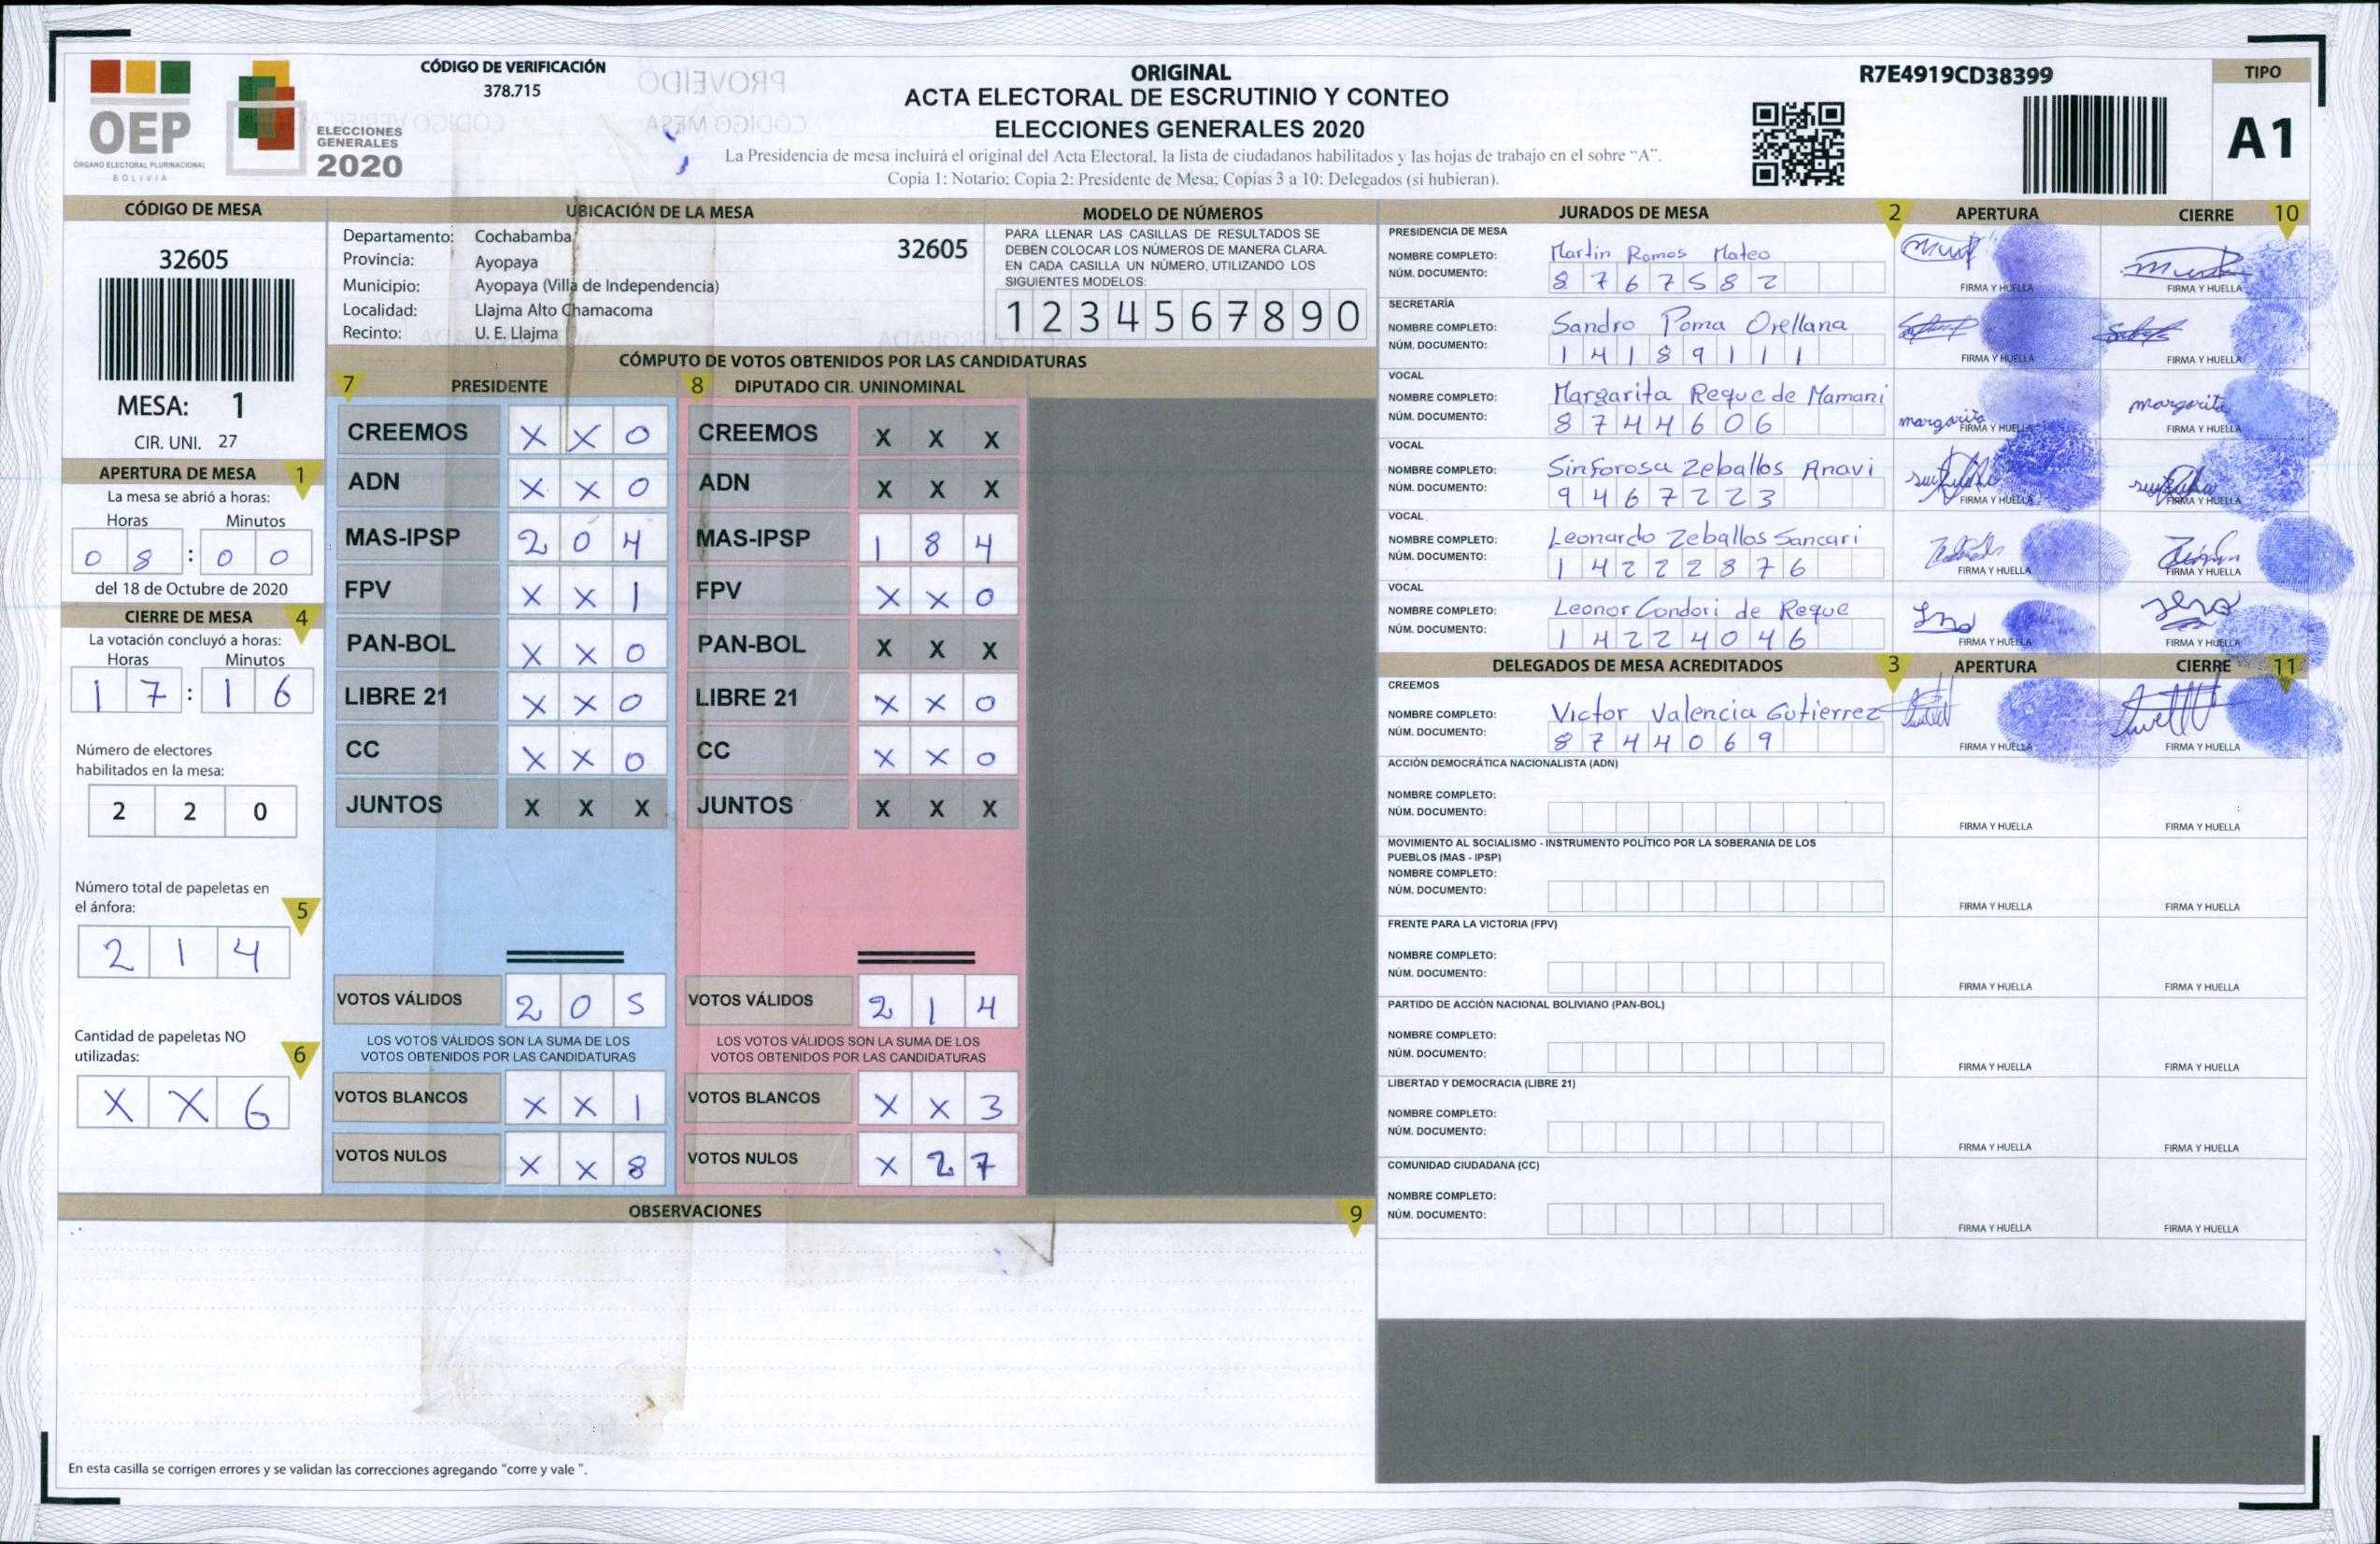 OEP
ÓRGANO ELECTORAL PLURINACIONAL
BOLIVIA
ELECCIONES
GENERALES
2020
CÓDIGO DE VERIFICACIÓN
378.715
ORIGINAL
ACTA ELECTORAL DE ESCRUTINIO Y CONTEO
ELECCIONES GENERALES 2020
La Presidencia de mesa incluirá el original del Acta Electoral, la lista de ciudadanos habilitados y las hojas de trabajo en el sobre "A".
Copia 1: Notario; Copia 2: Presidente de Mesa; Copias 3 a 10: Delegados (si hubieran).
R7E4919CD38399
TIPO
A1
CÓDIGO DE MESA
32605
MESA: 1
CIR. UNI. 27
APERTURA DE MESA 1
La mesa se abrió a horas:
Horas Minutos
0 8 : 0 0
del 18 de Octubre de 2020
CIERRE DE MESA 4
La votación concluyó a horas:
Horas Minutos
1 7 : 1 6
Número de electores
habilitados en la mesa:
2 2 0
Número total de papeletas en
el ánfora: 5
2 1 4
Cantidad de papeletas NO
utilizadas: 6
X X 6
UBICACIÓN DE LA MESA
Departamento: Cochabamba
Provincia: Ayopaya
Municipio: Ayopaya (Villa de Independencia)
Localidad: Llajma Alto Chamacoma
Recinto: U. E. Llajma
32605
MODELO DE NÚMEROS
PARA LLENAR LAS CASILLAS DE RESULTADOS SE
DEBEN COLOCAR LOS NÚMEROS DE MANERA CLARA.
EN CADA CASILLA UN NÚMERO, UTILIZANDO LOS
SIGUIENTES MODELOS:
1 2 3 4 5 6 7 8 9 0
CÓMPUTO DE VOTOS OBTENIDOS POR LAS CANDIDATURAS
7 PRESIDENTE 8 DIPUTADO CIR. UNINOMINAL
CREEMOS X X 0 CREEMOS X X X
ADN X X 0 ADN X X X
MAS-IPSP 2 0 4 MAS-IPSP 1 8 4
FPV X X 1 FPV X X 0
PAN-BOL X X 0 PAN-BOL X X X
LIBRE 21 X X 0 LIBRE 21 X X 0
CC X X 0 CC X X 0
JUNTOS X X X JUNTOS X X X
VOTOS VÁLIDOS 2 0 5 VOTOS VÁLIDOS 2 1 4
LOS VOTOS VÁLIDOS SON LA SUMA DE LOS LOS VOTOS VÁLIDOS SON LA SUMA DE LOS
VOTOS OBTENIDOS POR LAS CANDIDATURAS VOTOS OBTENIDOS POR LAS CANDIDATURAS
VOTOS BLANCOS X X 1 VOTOS BLANCOS X X 3
VOTOS NULOS X X 8 VOTOS NULOS X 2 7
OBSERVACIONES 9
En esta casilla se corrigen errores y se validan las correcciones agregando "corre y vale ".
JURADOS DE MESA 2 APERTURA CIERRE 10
PRESIDENCIA DE MESA
NOMBRE COMPLETO: Martin Ramos Mateo
NÚM. DOCUMENTO: 8 7 6 7 5 8 2
FIRMA Y HUELLA FIRMA Y HUELLA
SECRETARÍA
NOMBRE COMPLETO: Sandro Poma Orellana
NÚM. DOCUMENTO: 1 4 1 8 9 1 1 1
FIRMA Y HUELLA FIRMA Y HUELLA
VOCAL
NOMBRE COMPLETO: Margarita Reque de Mamani
NÚM. DOCUMENTO: 8 7 4 4 6 0 6
margarita margarita
FIRMA Y HUELLA FIRMA Y HUELLA
VOCAL
NOMBRE COMPLETO: Sinforosa Zeballos Anavi
NÚM. DOCUMENTO: 9 4 6 7 2 2 3
FIRMA Y HUELLA FIRMA Y HUELLA
VOCAL
NOMBRE COMPLETO: Leonardo Zeballos Sancari
NÚM. DOCUMENTO: 1 4 2 2 2 8 7 6
FIRMA Y HUELLA FIRMA Y HUELLA
VOCAL
NOMBRE COMPLETO: Leonor Condori de Reque
NÚM. DOCUMENTO: 1 4 2 2 4 0 4 6
FIRMA Y HUELLA FIRMA Y HUELLA
DELEGADOS DE MESA ACREDITADOS 3 APERTURA CIERRE 11
CREEMOS
NOMBRE COMPLETO: Victor Valencia Gutierrez
NÚM. DOCUMENTO: 8 7 4 4 0 6 9
FIRMA Y HUELLA FIRMA Y HUELLA
ACCIÓN DEMOCRÁTICA NACIONALISTA (ADN)
NOMBRE COMPLETO:
NÚM. DOCUMENTO:
FIRMA Y HUELLA FIRMA Y HUELLA
MOVIMIENTO AL SOCIALISMO - INSTRUMENTO POLÍTICO POR LA SOBERANIA DE LOS
PUEBLOS (MAS - IPSP)
NOMBRE COMPLETO:
NÚM. DOCUMENTO:
FIRMA Y HUELLA FIRMA Y HUELLA
FRENTE PARA LA VICTORIA (FPV)
NOMBRE COMPLETO:
NÚM. DOCUMENTO:
FIRMA Y HUELLA FIRMA Y HUELLA
PARTIDO DE ACCIÓN NACIONAL BOLIVIANO (PAN-BOL)
NOMBRE COMPLETO:
NÚM. DOCUMENTO:
FIRMA Y HUELLA FIRMA Y HUELLA
LIBERTAD Y DEMOCRACIA (LIBRE 21)
NOMBRE COMPLETO:
NÚM. DOCUMENTO:
FIRMA Y HUELLA FIRMA Y HUELLA
COMUNIDAD CIUDADANA (CC)
NOMBRE COMPLETO:
NÚM. DOCUMENTO:
FIRMA Y HUELLA FIRMA Y HUELLA